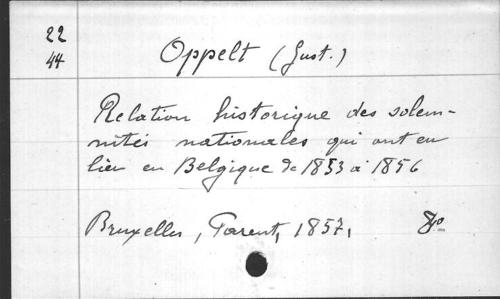 22
44
Oppelt (Gust.)
Relation historique des solem-
nités nationales qui ont eu
lieu en Belgique de 1853 à 1856
Bruxelles, Parent, 1857, 8º